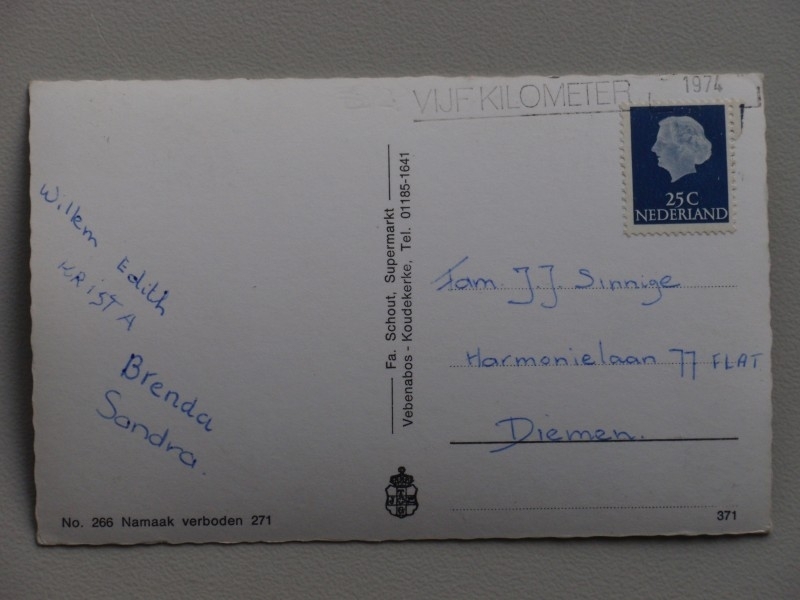 VIJF KILOMETER
1974
25 C
NEDERLAND
Willem Edith
KRISTA
Brenda
Sandra.
Fa. Schout, Supermarkt
Vebenabos - Koudekerke, Tel. 01185-1641
Fam. J.J. Sinnige
Harmonielaan 77 FLAT
Diemen.
No. 266 Namaak verboden 271
371